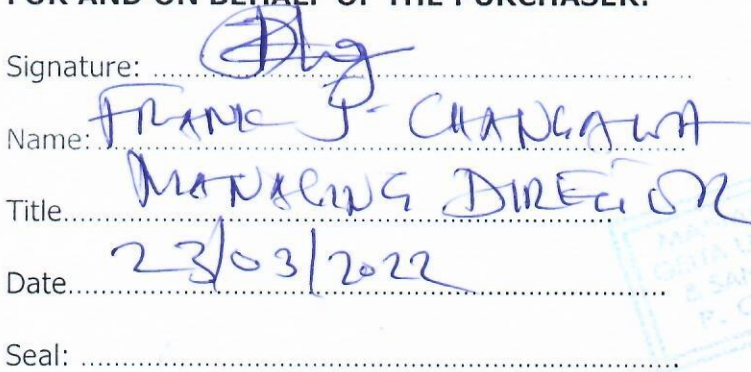 FOR AND ON BEHALF OF THE PURCHASER:
Signature: ..........
Name: FRANK J. CHANGAWA
Title..... MANAGING DIRECTOR
Date..... 23/03/2022
Seal: ..........